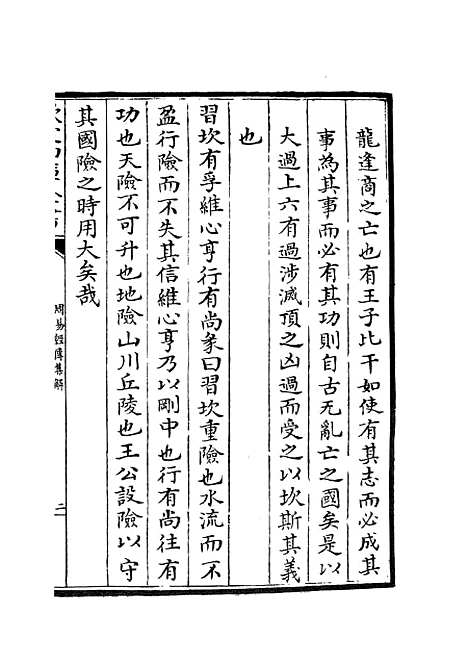 龍逢商之亡也有王子比干如使有其志而必成其
事為其事而必有其功則自古无亂亡之國矣是以
大過上六有過涉滅頂之凶過而受之以坎斯其義
也
習坎有孚維心亨行有尚彖曰習坎重險也水流而不
盈行險而不失其信維心亨乃以剛中也行有尚往有
功也天險不可升也地險山川丘陵也王公設險以守
其國險之時用大矣哉
周易經傳集解
二